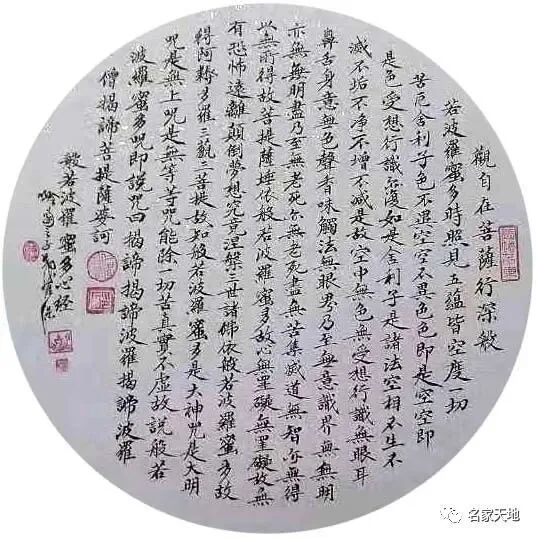 觀自在菩薩行深般
若波羅蜜多時照見五蘊皆空度一切
苦厄舍利子色不異空空不異色色即是空空即
是色受想行識亦復如是舍利子是諸法空相不生不
滅不垢不净不增不減是故空中無色無受想行識無眼耳
鼻舌身意無色聲香味觸法無眼界乃至無意識界無無明
亦無無明盡乃至無老死亦無老死盡無苦集滅道無智亦無得
以無所得故菩提薩埵依般若波羅蜜多故心無罣礙無罣礙故無
有恐怖遠離顛倒夢想究竟涅槃三世諸佛依般若波羅蜜多故
得阿耨多羅三藐三菩提故知般若波羅蜜多是大神咒是大明
咒是無上咒是無等等咒能除一切苦真實不虛故說般若
波羅蜜多咒即說咒曰揭諦揭諦波羅揭諦波羅
僧揭諦菩提薩婆訶
般若波羅蜜多心經
名家天地